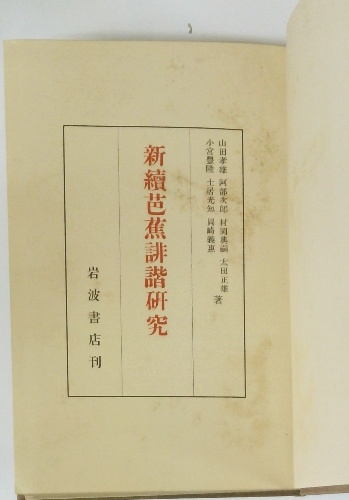 山田孝雄 阿部次郎 村岡典嗣 太田正雄
小宮豊隆 土居光知 岡崎義惠 著
新續芭蕉誹諧硏究
岩波書店刊